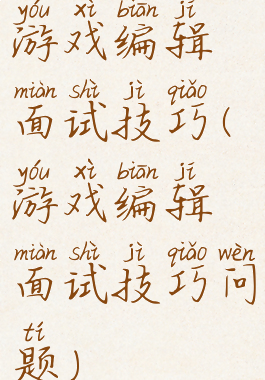 yóu xì biān jí
游戏编辑
miàn shì jì qiǎo
面试技巧(
yóu xì biān jí
游戏编辑
miàn shì jì qiǎo wèn
面试技巧问
tí
题)